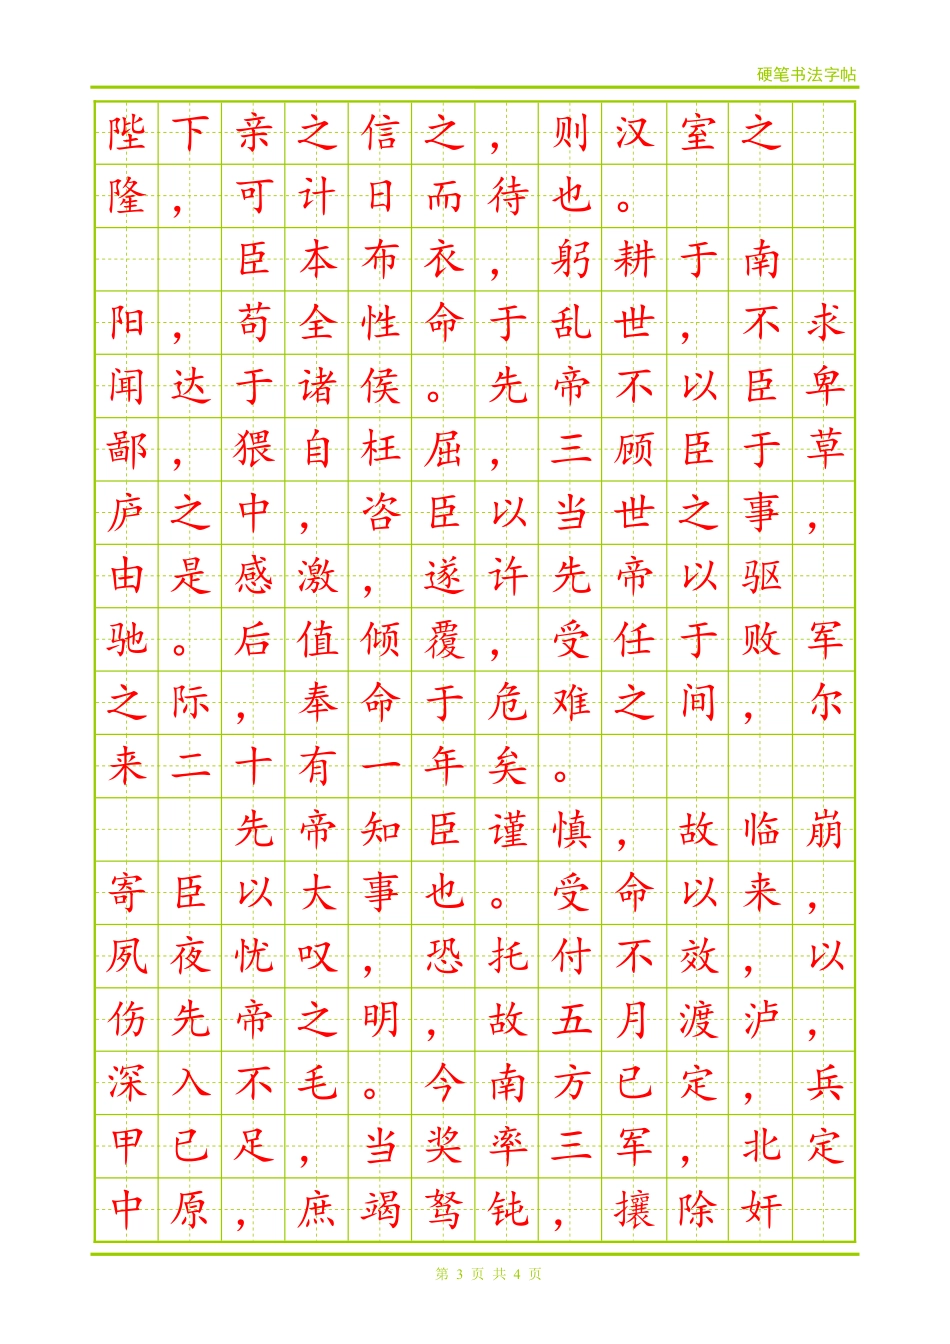 硬笔书法字帖
陛下亲之信之，则汉室之
隆，可计日而待也。
臣本布衣，躬耕于南
阳，苟全性命于乱世，不求
闻达于诸侯。先帝不以臣卑
鄙，猥自枉屈，三顾臣于草
庐之中，咨臣以当世之事，
由是感激，遂许先帝以驱
驰。后值倾覆，受任于败军
之际，奉命于危难之间，尔
来二十有一年矣。
先帝知臣谨慎，故临崩
寄臣以大事也。受命以来，
夙夜忧叹，恐托付不效，以
伤先帝之明，故五月渡泸，
深入不毛。今南方已定，兵
甲已足，当奖率三军，北定
中原，庶竭驽钝，攘除奸
第 3 页 共 4 页